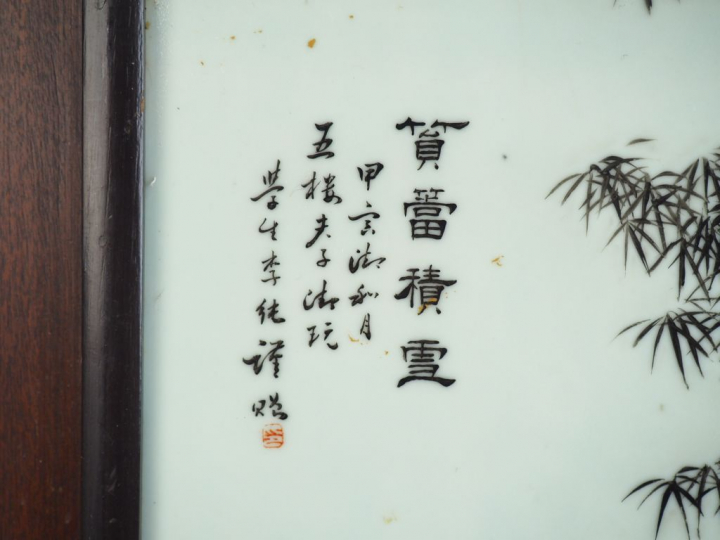 篔簹積雪
甲寅清和月
五楼夫子清玩
學生李純謹贈